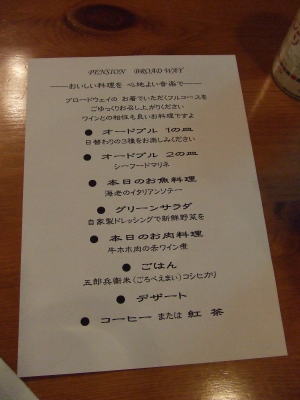 PENSION BROADWAY
――おいしい料理を 心地よい音楽で――
ブロードウェイの お箸でいただくフルコースを
ごゆっくりお召し上がりください
ワインとの相性も良いお料理ですよ
● オードブル 1の皿
日替わりの3種をお楽しみください
● オードブル 2の皿
シーフードマリネ
● 本日のお魚料理
海老のイタリアンソテー
● グリーンサラダ
自家製ドレッシングで新鮮野菜を
● 本日のお肉料理
牛ホホ肉の赤ワイン煮
● ごはん
五郎兵衛米(ごろべえまい)コシヒカリ
● デザート
● コーヒー または 紅 茶